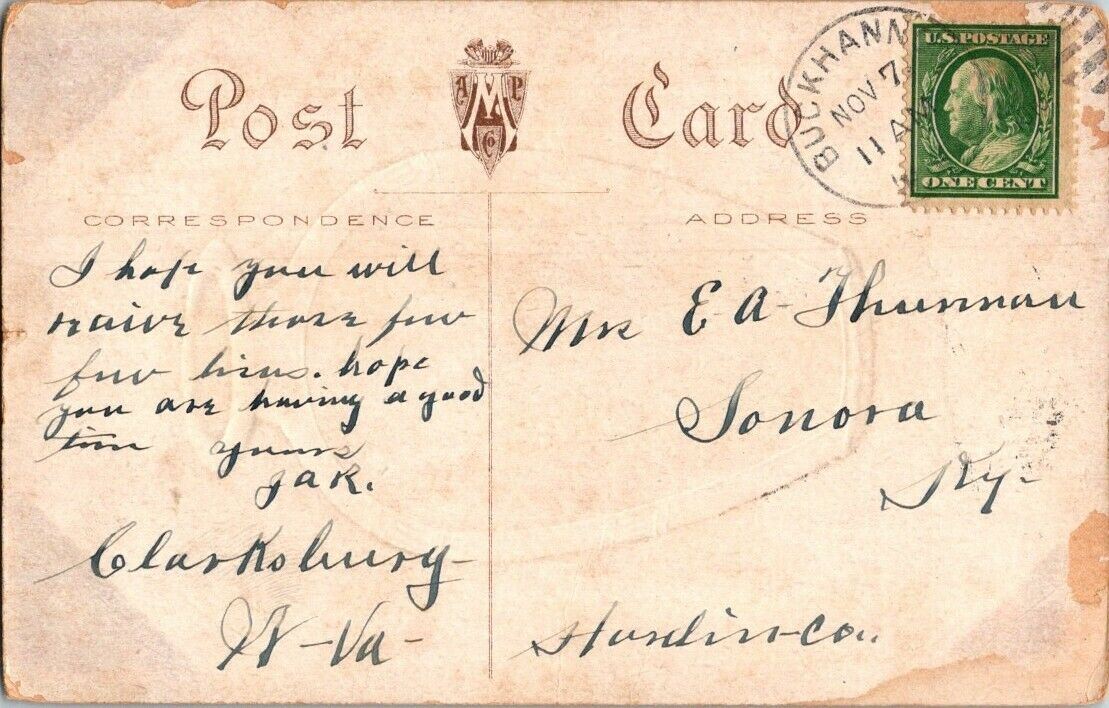 Post Card
A M P Co
BUCKHANN
NOV 7
11 AM
U.S. POSTAGE
ONE CENT
CORRESPONDENCE
ADDRESS
I hope you will
reaive those few
few lines. hope
you are having a good
time yours
JAK.
Clarksburg
W-Va-
Mrs E-A-Thurman
Sonora
Ky-
Hardin-co..